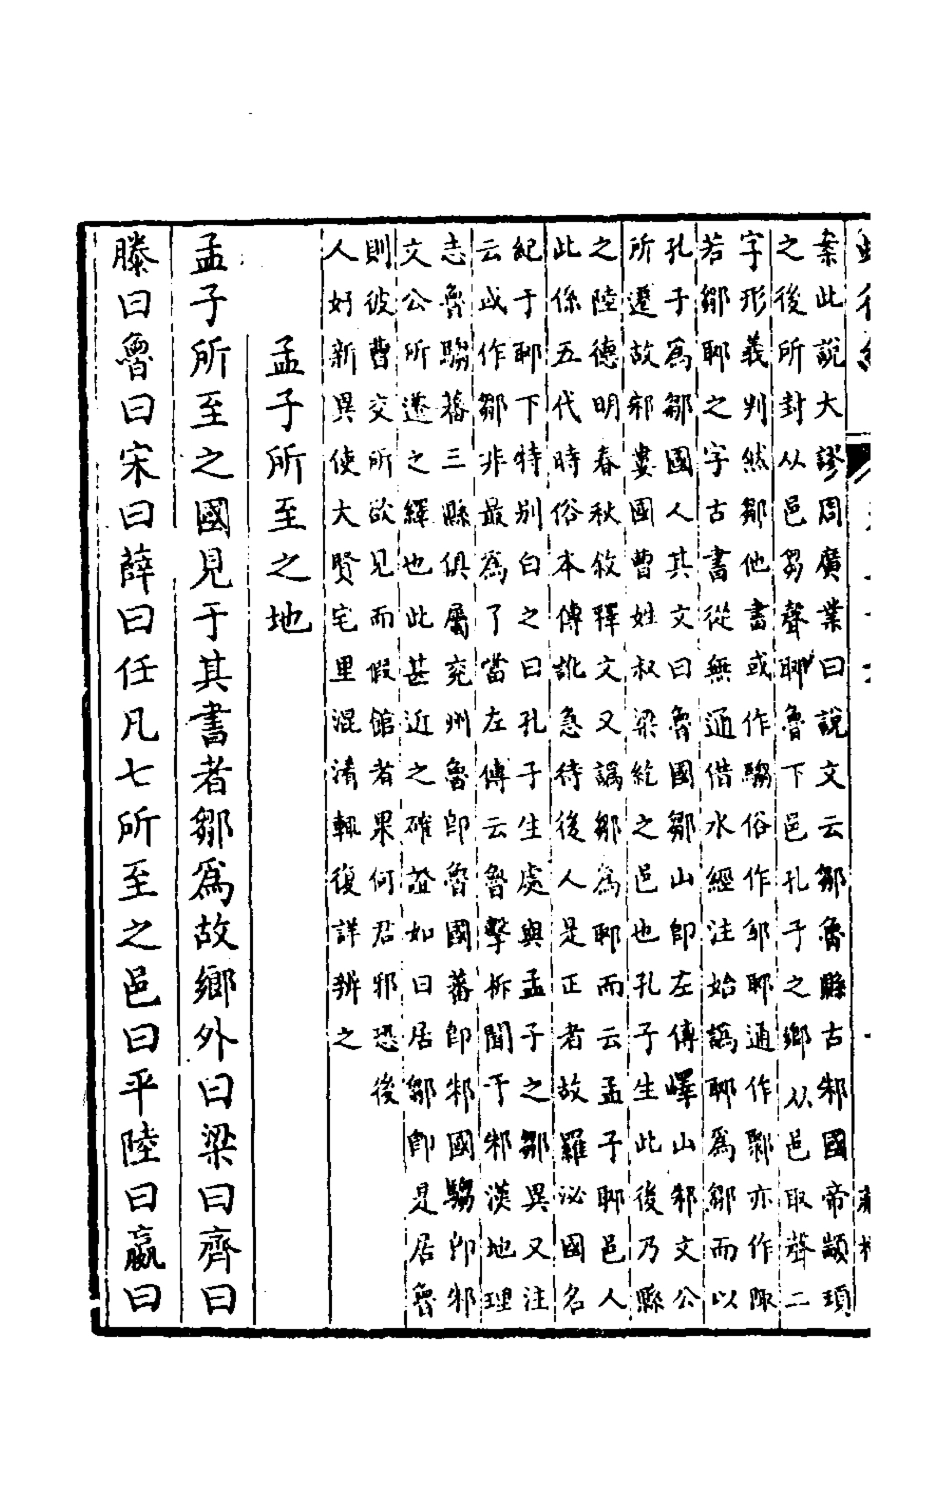 案此說大謬周廣業曰說文云鄒魯縣古邾國帝顓頊
之後所封从邑芻聲郰魯下邑孔子之鄉从邑取聲二
字形義判然鄒他書或作騶俗作邹郰通作鄹亦作陬
若鄒郰之字古書從無通借水經注始譌郰爲鄒而以
孔子爲鄒國人其文曰魯國鄒山卽左傳嶧山邾文公
所遷故邾婁國曹姓叔梁紇之邑也孔子生此後乃縣
之陸德明春秋敘釋文又譌鄒爲郰而云孟子郰邑人
此係五代時俗本傳訛急待後人是正者故羅泌國名
紀于郰下特別白之曰孔子生處與孟子之鄒異又注
云或作鄒非最爲了當左傳云魯擊柝聞于邾漢地理
志魯騶蕃三縣俱屬兗州魯卽魯國蕃卽邾國騶卽邾
文公所遷之繹也此甚近之確證如曰居鄒卽是居魯
則彼曹交所欲見而假館者果何君邪恐後
人好新異使大賢宅里混淆輒復詳辨之
孟子所至之地
孟子所至之國見于其書者鄒爲故鄉外曰梁曰齊曰
滕曰魯曰宋曰薛曰任凡七所至之邑曰平陸曰嬴曰